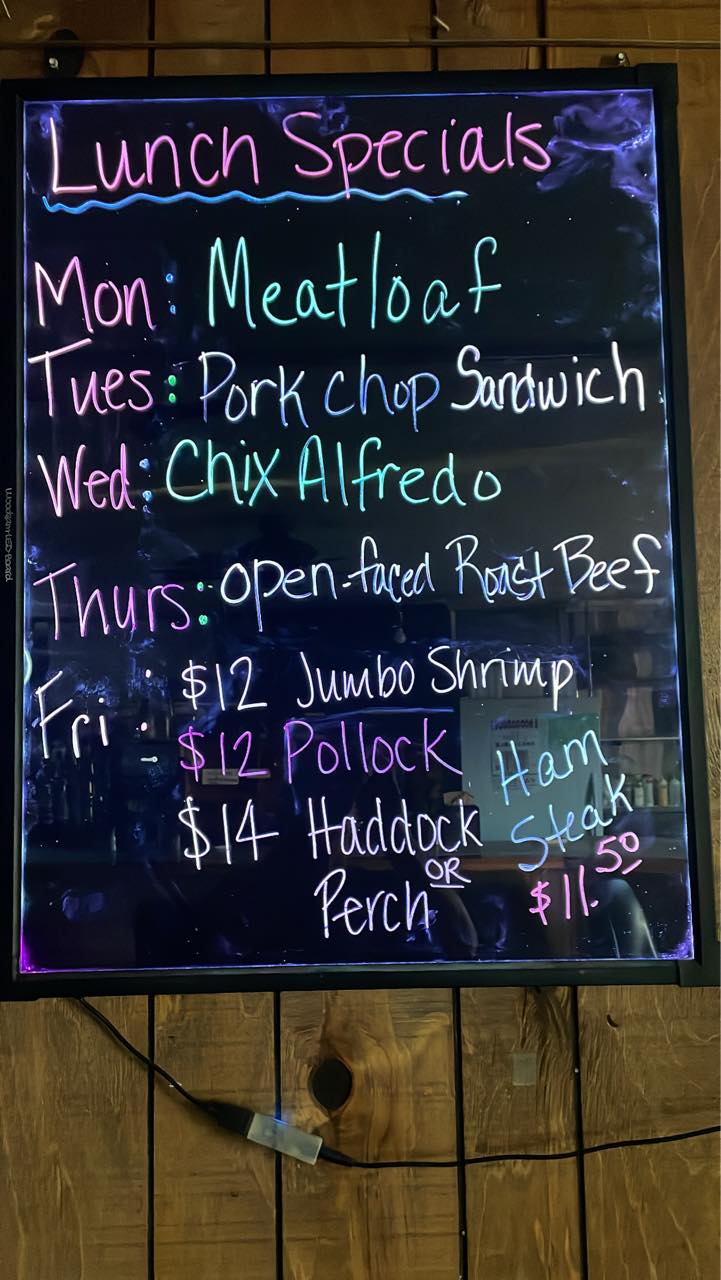 Lunch Specials
Mon: Meatloaf
Tues: Pork Chop Sandwich
Wed: Chix Alfredo
Thurs: open-faced Roast Beef
Fri: $12 Jumbo Shrimp
$12 Pollock
$14 Haddock
OR
Perch
Ham
Steak
$11.50